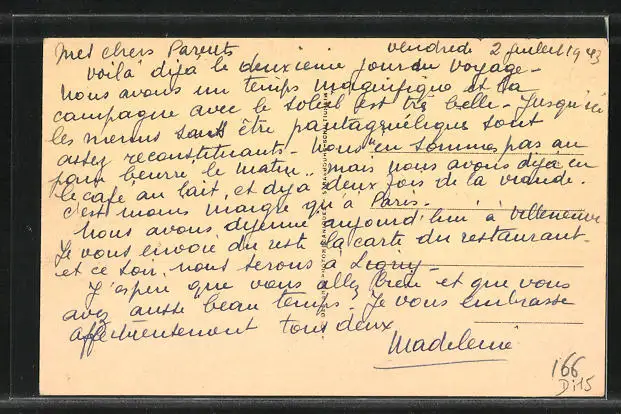 Mes chers Parents vendredi 2 juillet 1943
voilà déjà le deuxième jour du voyage -
Nous avons un temps magnifique et la
campagne avec le soleil est très belle - Jusqu'ici
les menus sans être pantagruélique sont
assez reconstituants - Nous en sommes pas au
pain beurre le matin .. mais nous avons déjà eu
le café au lait, et déjà deux fois de la viande.
c'est moins maigre qu'à Paris.
Nous avons déjeuné aujourd'hui à Villeneuve
Je vous envoie du reste la carte du restaurant -
et ce soir, nous serons à
J'espère que vous allez bien et que vous
avez aussi beau temps? Je vous embrasse
affectueusement tous deux
Madeleine
166
Di15